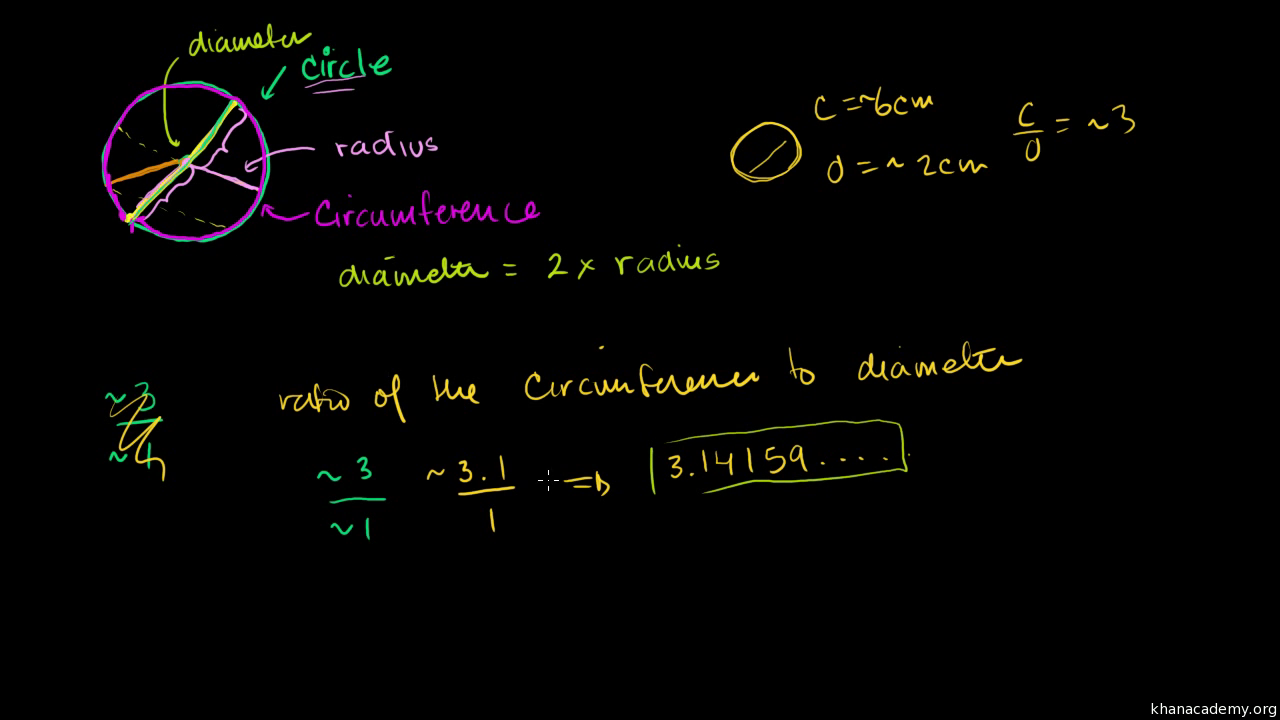 diameter
circle
radius
circumference
diameter = 2 x radius
c = ~6cm
d = ~ 2cm
c/d = ~3
ratio of the circumference to diameter
~3
~1
~3
~1
~3.1
1
⇒ 3.14159....
khanacademy.org